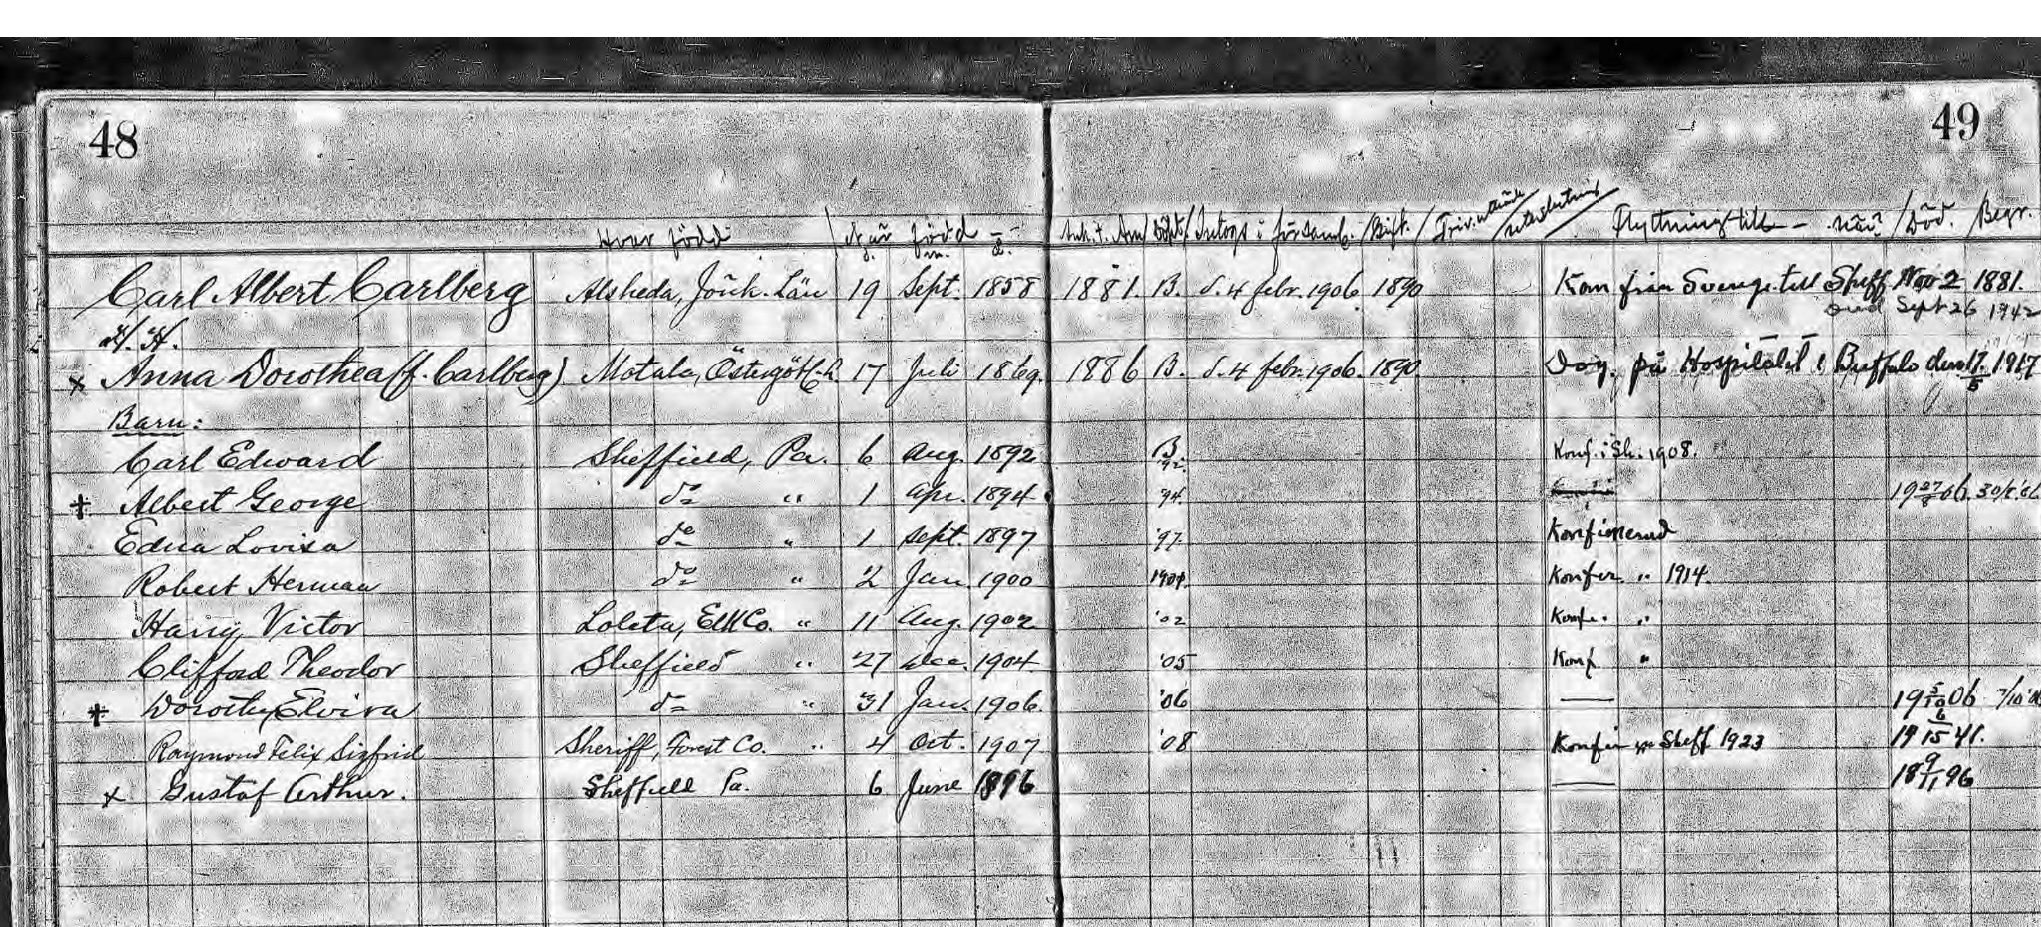 48
49
Hvar född När född Ank. t. Am/Döpt/Intogs i församl./Gift./ Flyttning till – när? /Död. /Begr.
d. m. å.
Carl Albert Carlberg Alsheda, Jönk. Län 19 Sept. 1858 1881. B. d. 4 febr. 1906. 1890 Kom från Sverige till Sheff Nov 2 1881.
Died Sept 26 1942
H. H.
x Anna Dorothea (f. Carlberg) Motala, Östergötl. L. 17 Juli 1869. 1886 B. d. 4 febr. 1906. 1890 Dog på Hospitalet i Buffalo den 17/5 1917
Barn:
Carl Edward Sheffield, Pa. 6 Aug. 1892 B. '92. Konf. i Sh. 1908.
† Albert George do " 1 Apr. 1894 94. 19 27/8 06. 30/8 '06
Edna Lovisa do " 1 Sept. 1897 '97. Konfirmerad
Robert Herman do " 2 Jan. 1900 1901. Konfir. " 1914.
Harry Victor Loleta, Elk Co. " 11 Aug. 1902 '02 Konf. "
Clifford Theodor Sheffield " 27 Dec. 1904 '05 Konf "
† Dorothy Elvira do " 31 Jan. 1906. '06 — 19 5/10 06 7/10
Raymond Felix Sigfrid Sheriff, Forest Co. " 4 Oct. 1907 '08 Konfir Sheff 1923 19 6/15 41.
x Gustaf Arthur. Sheffield Pa. 6 June 1896 — 18 9/11 96